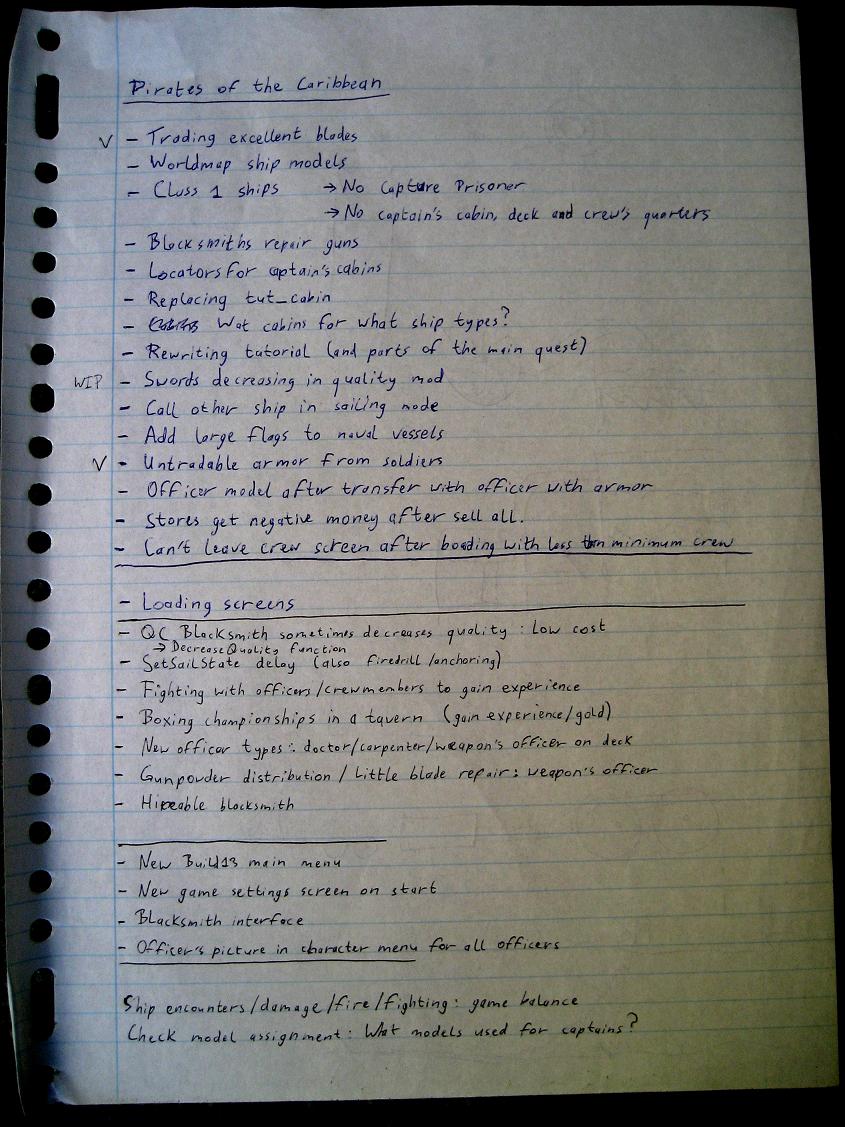 Pirates of the Caribbean
V - Trading excellent blades
- Worldmap ship models
- Class 1 ships → No Capture Prisoner
→ No captain's cabin, deck and crew's quarters
- Blacksmiths repair guns
- Locators for captain's cabins
- Replacing tut_cabin
- Wat cabins for what ship types?
- Rewriting tutorial (and parts of the main quest)
WIP - Swords decreasing in quality mod
- Call other ship in sailing mode
- Add large flags to naval vessels
V - Untradable armor from soldiers
- Officer model after transfer with officer with armor
- Stores get negative money after sell all.
- Can't leave crew screen after boading with less than minimum crew
- Loading screens
- QC Blacksmith sometimes decreases quality : Low cost
→ DecreaseQuality function
- SetSailState delay (also firedrill/anchoring)
- Fighting with officers/crewmembers to gain experience
- Boxing championships in a tavern (gain experience/gold)
- New officer types: doctor/carpenter/weapon's officer on deck
- Gunpowder distribution / Little blade repair: weapon's officer
- Hireable blacksmith
- New Build13 main menu
- New game settings screen on start
- Blacksmith interface
- Officer's picture in character menu for all officers
Ship encounters/damage/fire/fighting: game balance
Check model assignment: What models used for captains?